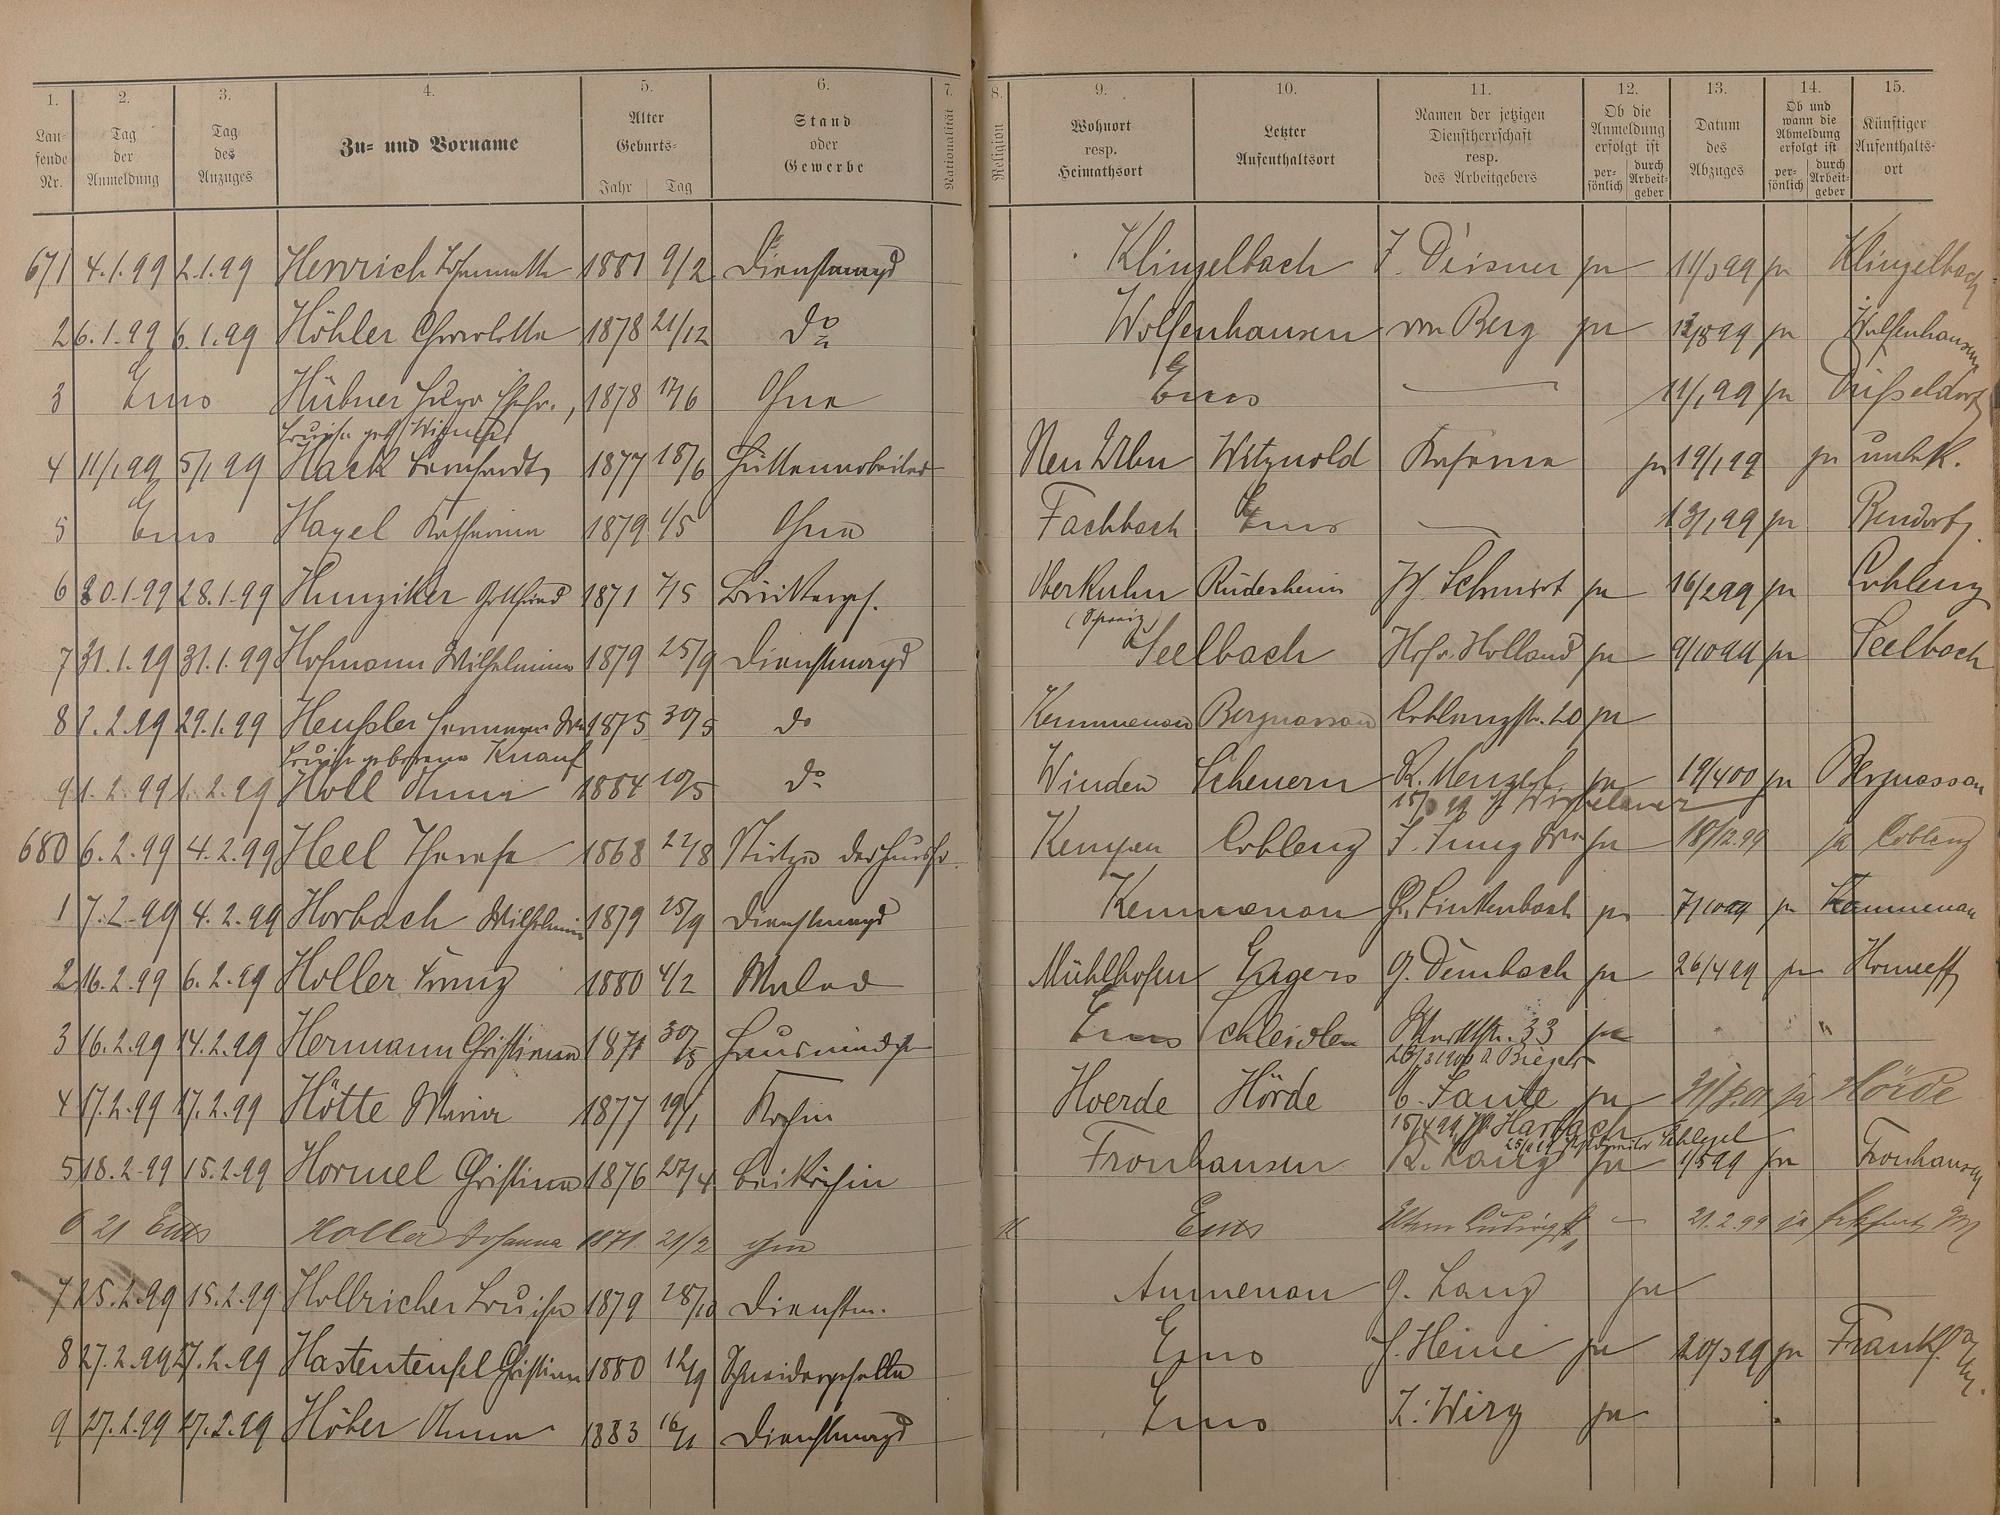 1. 2. 3. 4. 5. 6. 7. 8. 9. 10. 11. 12. 13. 14. 15.
Lau-fende Nr. Tag der Anmeldung Tag des Anzuges Zu- und Vorname Alter Geburts- Jahr Tag Stand oder Gewerbe Nationalität Religion Wohnort resp. Heimathsort Letzter Aufenthaltsort Namen der jetzigen Dienstherrschaft resp. des Arbeitgebers Ob die Anmeldung erfolgt ist per-sönlich durch Arbeit-geber Datum des Abzuges Ob und wann die Abmeldung erfolgt ist per-sönlich durch Arbeit-geber Künftiger Aufenthalts-ort
671 4.1.99 2.1.99 Henrich 1881 9/2 Dienstmagd Klingelbach J. Deisner ja 11/3 99 ja Klingelbach
2 6.1.99 6.1.99 Höhler Charlotte 1878 21/12 do Wolfenhausen von Berg ja 99 ja Wolfenhausen
3 Ems Hübner 1878 17/6 Ohne Ems 11/1 99 ja Düsseldorf
Louise geb.
4 11/1 99 5/1 99 Hack Bernhardt 1877 18/6 Hüttenarbeiter Witznold Kaserne ja 19/1 99 ja unbek.
5 Ems Hagel Katharina 1879 1/5 Ohne Fachbach Ems 13/1 99 ja Bendorf.
6 30.1.99 28.1.99 Hunziker Gottfried 1871 7/5 Oberkulm Rüdesheim Schmidt ja 16/2 99 ja Coblenz
(Schweiz)
7 31.1.99 31.1.99 Hofmann Wilhelmine 1879 25/9 Dienstmagd Seelbach Holland ja 9/10 99 ja Seelbach
8 1.2.99 29.1.99 Heußler Hermann 1875 30/5 do Kemmenau Bergnassau Coblenzstr. 20 ja
Louise geborene Knauf
9 1.2.99 1.2.99 Holl Anna 1884 10/5 do Winden Scheuern K. Menzel ja 19/4 00 ja Bergnassau
680 6.2.99 4.2.99 Heel Therese 1868 22/8 Stütze der Hausfr. Kempen Coblenz J. Jung ja 18/12.99 ja Coblenz
1 7.2.99 4.2.99 Horbach Wilhelmine 1879 25/9 Dienstmagd Kemmenau Linkenbach ja 7/10 99 ja Kemmenau
2 16.2.99 6.2.99 Holler Franz 1880 4/2 Maler Mühlhofen Engers G. Dembach ja 26/4 99 ja Honneff
3 16.2.99 14.2.99 Hermann Christiane 1871 30/ Ems Schleiden 33 ja
4 17.2.99 17.2.99 Hötte Maria 1877 19/1 Köchin Hoerde Hörde ja ja Hörde
15/4 99 Harbach
5 18.2.99 15.2.99 Hormel Christina 1876 27/4 Beiköchin Fronhausen K. Lang ja 1/5 99 ja Fronhausen
6 21 Ems Holler Johanna 1871 21/2 ohne Ems Eltern Ludwig — 21.2.99 ja
7 25.2.99 15.2.99 Hollricher Louise 1879 28/10 Dienstm. Aumenau G. Lang ja
8 27.2.99 27.2.99 Hastenteufel Christian 1880 12/9 Schneidergeselle Ems J. Heine ja 20/3 99 ja Frankf. a/M.
9 27.2.99 27.2.99 Höher Anna 1883 16/11 Dienstmagd Ems ja